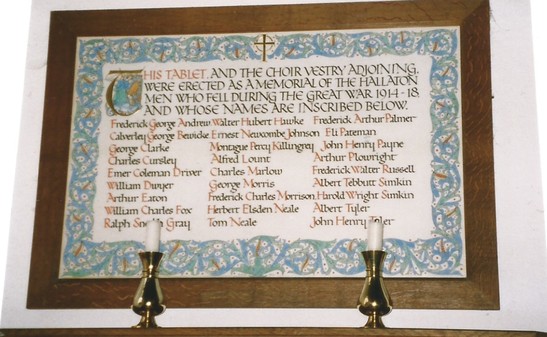 THIS TABLET, AND THE CHOIR VESTRY ADJOINING,
WERE ERECTED AS A MEMORIAL OF THE HALLATON
MEN WHO FELL DURING THE GREAT WAR 1914-18
AND WHOSE NAMES ARE INSCRIBED BELOW.
Frederick George Andrew Walter Hubert Hawke Frederick Arthur Palmer
Calverley George Bewicke Ernest Newcombe Johnson Eli Pateman
George Clarke Montague Percy Killingrey John Henry Payne
Charles Cursley Alfred Lount Arthur Plowright
Emer Coleman Driver Charles Marlow Frederick Walter Russell
William Dwyer George Morris Albert Tebbutt Simkin
Arthur Eaton Frederick Charles Morrison Harold Wright Simkin
William Charles Fox Herbert Elsden Neale Albert Tyler
Ralph Gray Tom Neale John Henry